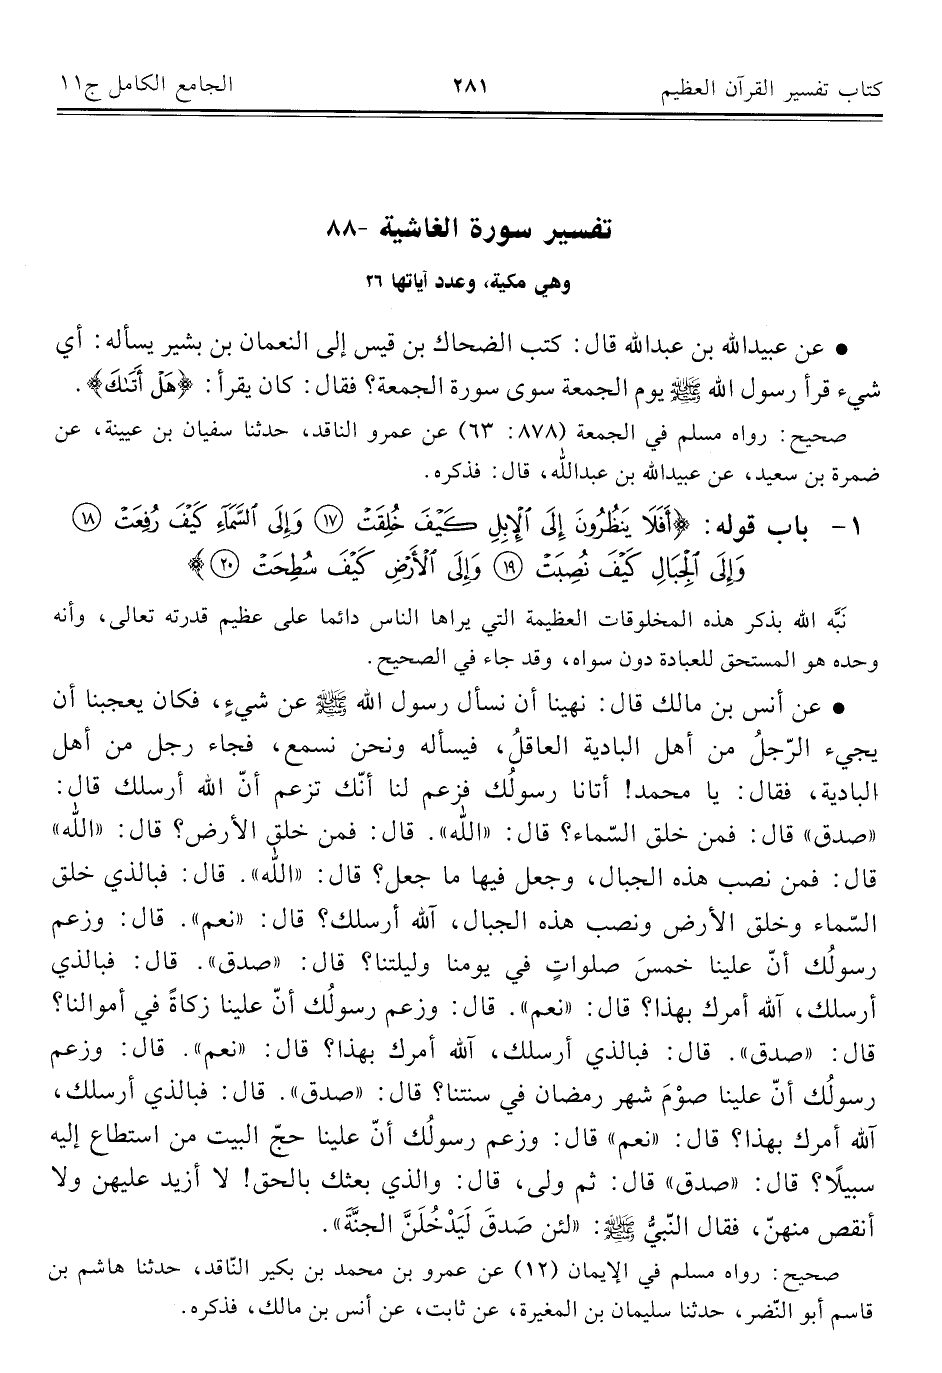 كتاب تفسير القرآن العظيم ٢٨١ الجامع الكامل ج١١
تفسير سورة الغاشية -٨٨
وهي مكية، وعدد آياتها ٢٦
• عن عبيدالله بن عبدالله قال: كتب الضحاك بن قيس إلى النعمان بن بشير يسأله: أي
شيء قرأ رسول الله ﷺ يوم الجمعة سوى سورة الجمعة؟ فقال: كان يقرأ: ﴿هَلْ أَتَىٰكَ﴾.
صحيح: رواه مسلم في الجمعة (٨٧٨: ٦٣) عن عمرو الناقد، حدثنا سفيان بن عيينة، عن
ضمرة بن سعيد، عن عبيدالله بن عبدالله، قال: فذكره.
١- باب قوله: ﴿أَفَلَا يَنظُرُونَ إِلَى ٱلْإِبِلِ كَيْفَ خُلِقَتْ ⑰ وَإِلَى ٱلسَّمَآءِ كَيْفَ رُفِعَتْ ⑱
وَإِلَى ٱلْجِبَالِ كَيْفَ نُصِبَتْ ⑲ وَإِلَى ٱلْأَرْضِ كَيْفَ سُطِحَتْ ⑳﴾
نَبَّه الله بذكر هذه المخلوقات العظيمة التي يراها الناس دائما على عظيم قدرته تعالى، وأنه
وحده هو المستحق للعبادة دون سواه، وقد جاء في الصحيح.
• عن أنس بن مالك قال: نهينا أن نسأل رسول الله ﷺ عن شيءٍ، فكان يعجبنا أن
يجيء الرّجلُ من أهل البادية العاقلُ، فيسأله ونحن نسمع، فجاء رجل من أهل
البادية، فقال: يا محمد! أتانا رسولُك فزعم لنا أنّك تزعم أنّ الله أرسلك قال:
«صدق» قال: فمن خلق السّماء؟ قال: «الله». قال: فمن خلق الأرض؟ قال: «الله»
قال: فمن نصب هذه الجبال، وجعل فيها ما جعل؟ قال: «الله». قال: فبالذي خلق
السّماء وخلق الأرض ونصب هذه الجبال، آلله أرسلك؟ قال: «نعم». قال: وزعم
رسولُك أنّ علينا خمسَ صلواتٍ في يومنا وليلتنا؟ قال: «صدق». قال: فبالذي
أرسلك، آلله أمرك بهذا؟ قال: «نعم». قال: وزعم رسولُك أنّ علينا زكاةً في أموالنا؟
قال: «صدق». قال: فبالذي أرسلك، آلله أمرك بهذا؟ قال: «نعم». قال: وزعم
رسولُك أنّ علينا صوْمَ شهر رمضان في سنتنا؟ قال: «صدق». قال: فبالذي أرسلك،
آلله أمرك بهذا؟ قال: «نعم» قال: وزعم رسولُك أنّ علينا حجّ البيت من استطاع إليه
سبيلًا؟ قال: «صدق» قال: ثم ولى، قال: والذي بعثك بالحق! لا أزيد عليهن ولا
أنقص منهنّ، فقال النّبيُّ ﷺ: «لئن صَدقَ لَيَدْخُلَنَّ الجنَّةَ».
صحيح: رواه مسلم في الإيمان (١٢) عن عمرو بن محمد بن بكير النّاقد، حدثنا هاشم بن
قاسم أبو النّضر، حدثنا سليمان بن المغيرة، عن ثابت، عن أنس بن مالك، فذكره.